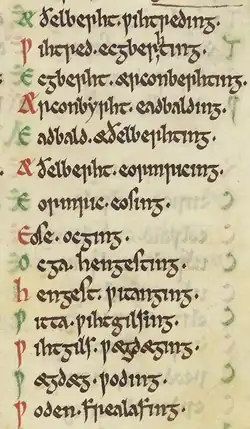 Æðelberht · ƿihtreding ·
Ƿihtred · ecgberhting ·
Ecgberht · ærconberhting ·
Ærconbyrht · eadbalding ·
Eadbald · æðelberhting ·
Æðelberht · eorminricing ·
Eorminric · eosing ·
Eose · ocging ·
Ocga · hengesting ·
Hengest · ƿitanging ·
Ƿitta · ƿihtgilsing ·
Ƿihtgils · ƿægdæging ·
Ƿægdæg · ƿoding ·
Ƿoden · frealafing ·